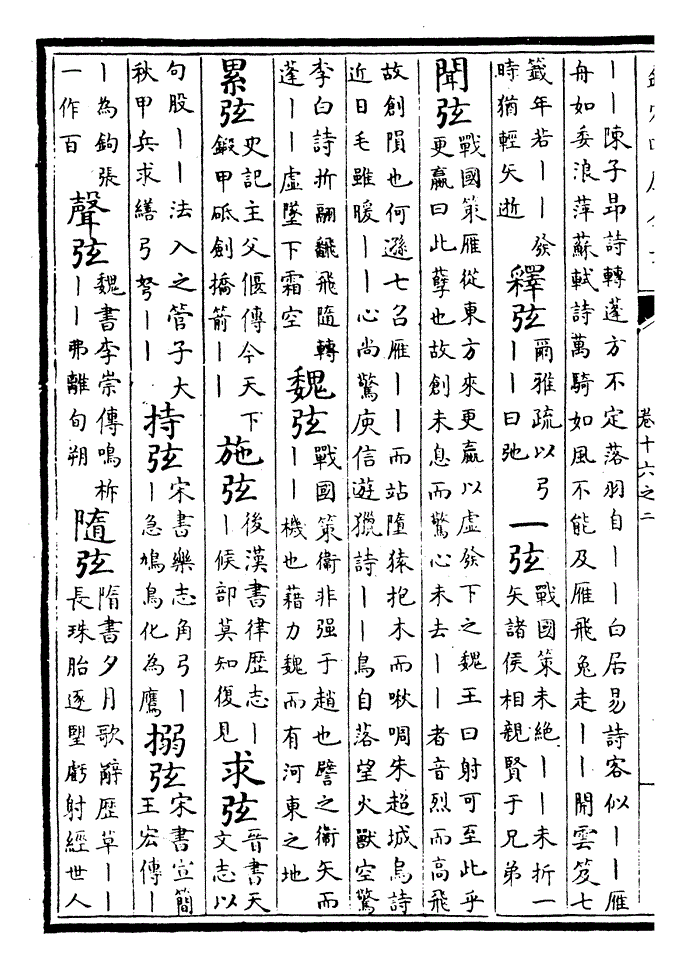 卷十六之二
｜｜陳子昂詩轉蓬方不定落羽自｜｜白居易詩客似｜｜雁
舟如委浪萍蘇軾詩萬騎如風不能及雁飛兔走｜｜開雲笈七
籖年若｜｜發
時猶輕矢逝
釋弦
爾雅疏以弓
｜｜曰弛
一弦
戰國策未絶｜｜未折一
矢諸侯相親賢于兄弟
聞弦
戰國策雁從東方來更羸以虚發下之魏王曰射可至此乎
更羸曰此孽也故創未息而驚心未去｜｜者音烈而高飛
故創隕也何遜七召雁｜｜而站墮猿抱木而啾啁朱超城烏詩
近日毛雖暖｜｜心尚驚庾信遊獵詩｜｜鳥自落望火獸空驚
李白詩折翮飜飛隨轉
蓬｜｜虚墜下霜空
魏弦
戰國策衛非强于趙也譬之衛矢而
｜｜機也藉力魏而有河東之地
累弦
史記主父偃傳今天下
鍜甲砥劍撟箭｜｜
施弦
後漢書律歴志｜
｜候部莫知復見
求弦
晉書天
文志以
句股｜｜法入之管子大
秋甲兵求繕弓弩｜｜
持弦
宋書樂志角弓｜
｜急鳩鳥化為鷹
搦弦
宋書宣簡
王宏傳｜
｜為鉤張
一作百
聲弦
魏書李崇傳鳴柝
｜｜弗離旬朔
隨弦
隋書夕月歌辭歴草｜｜
長珠胎逐望虧射經世人